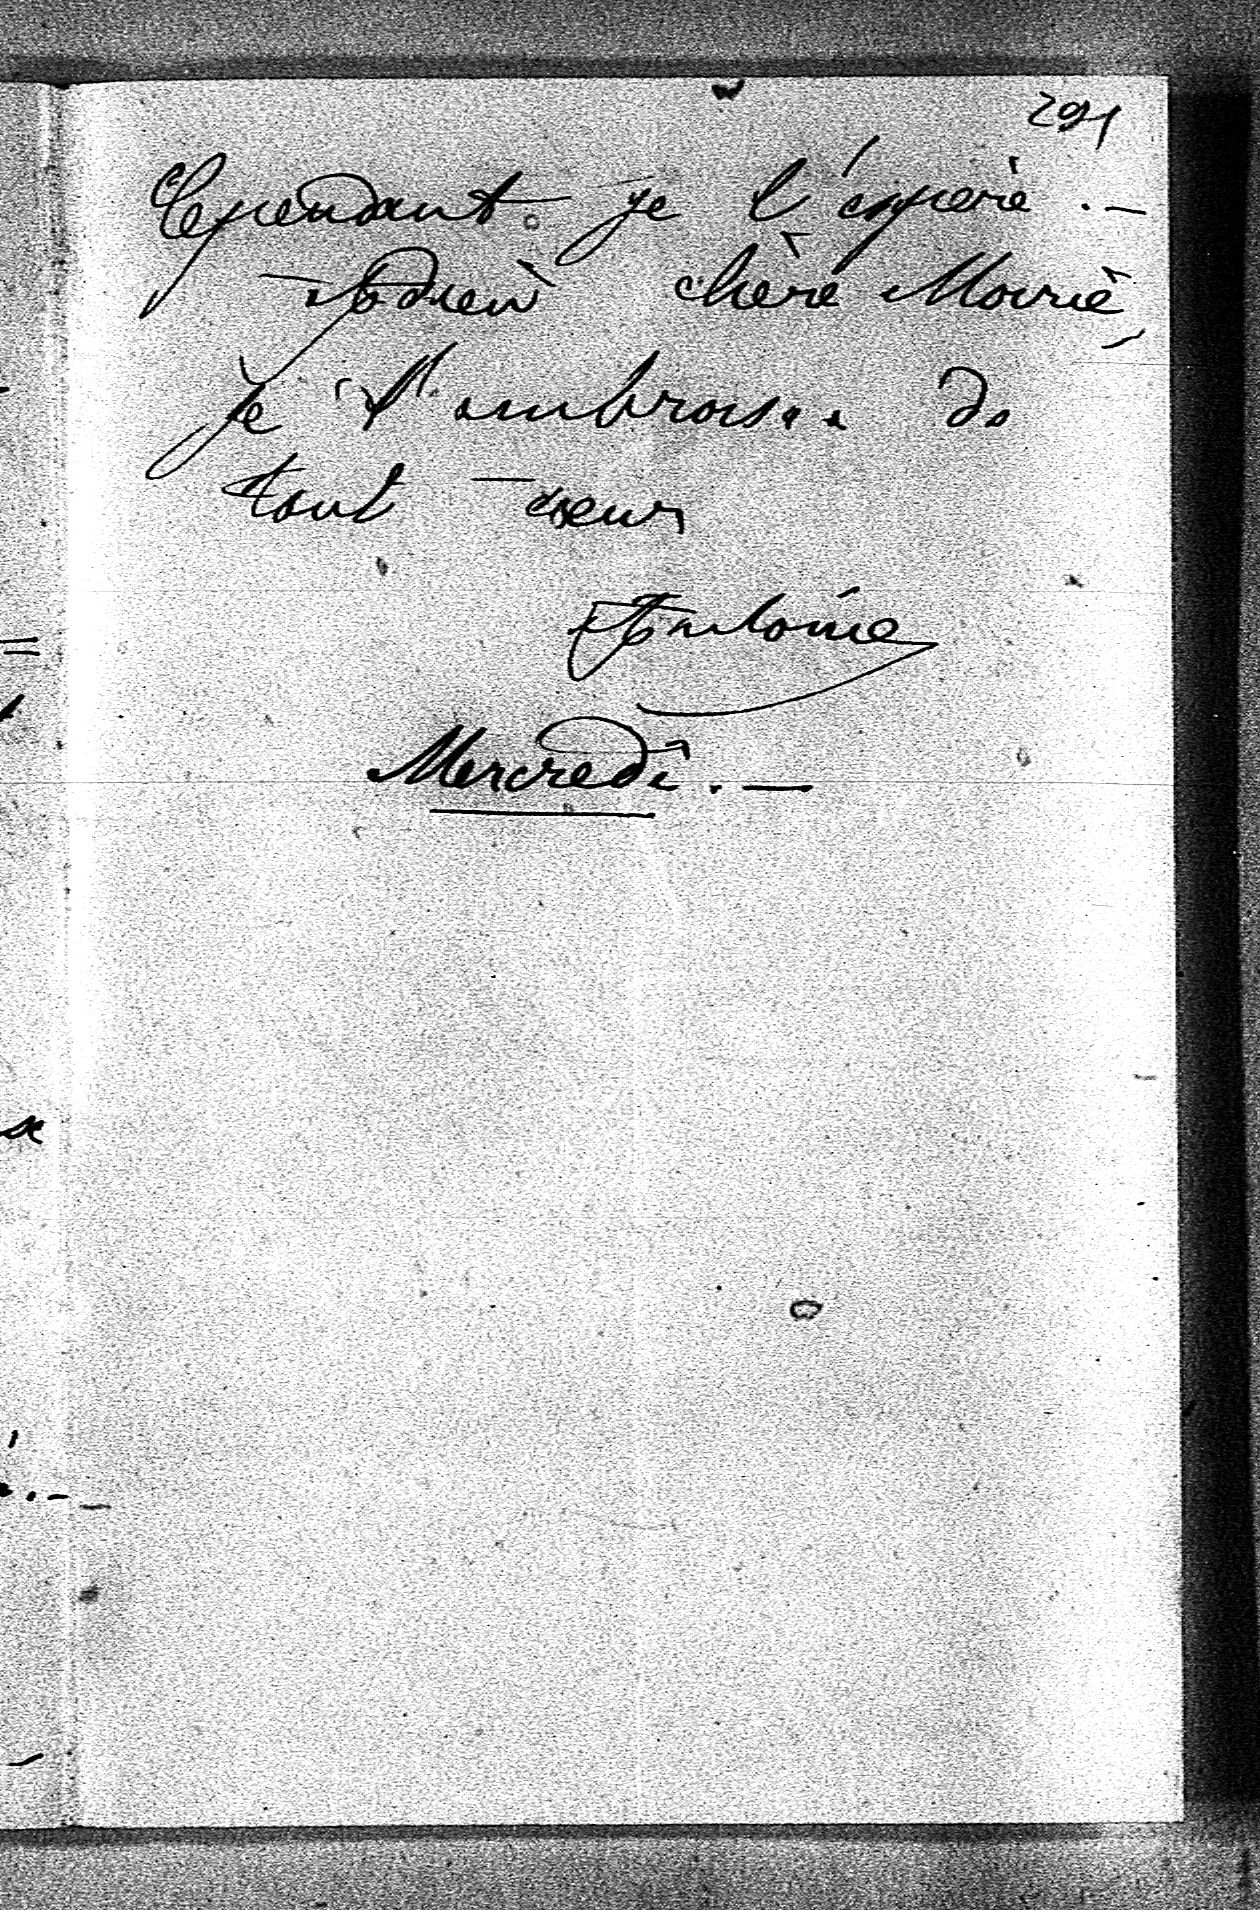 291
Cependant. je l'espère. —
Adieu chère Marie,
Je t'embrasse de
tout cœur
Antoine
Mercredi. —